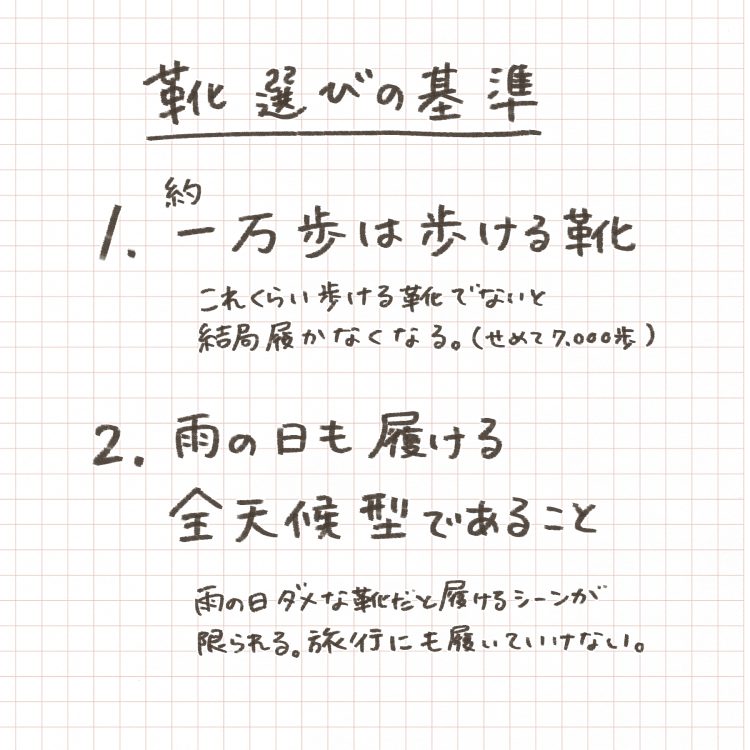 靴選びの基準
約
1. 一万歩は歩ける靴
これくらい歩ける靴でないと
結局履かなくなる。(せめて7,000歩)
2. 雨の日も履ける
全天候型であること
雨の日ダメな靴だと履けるシーンが
限られる。旅行にも履いていけない。